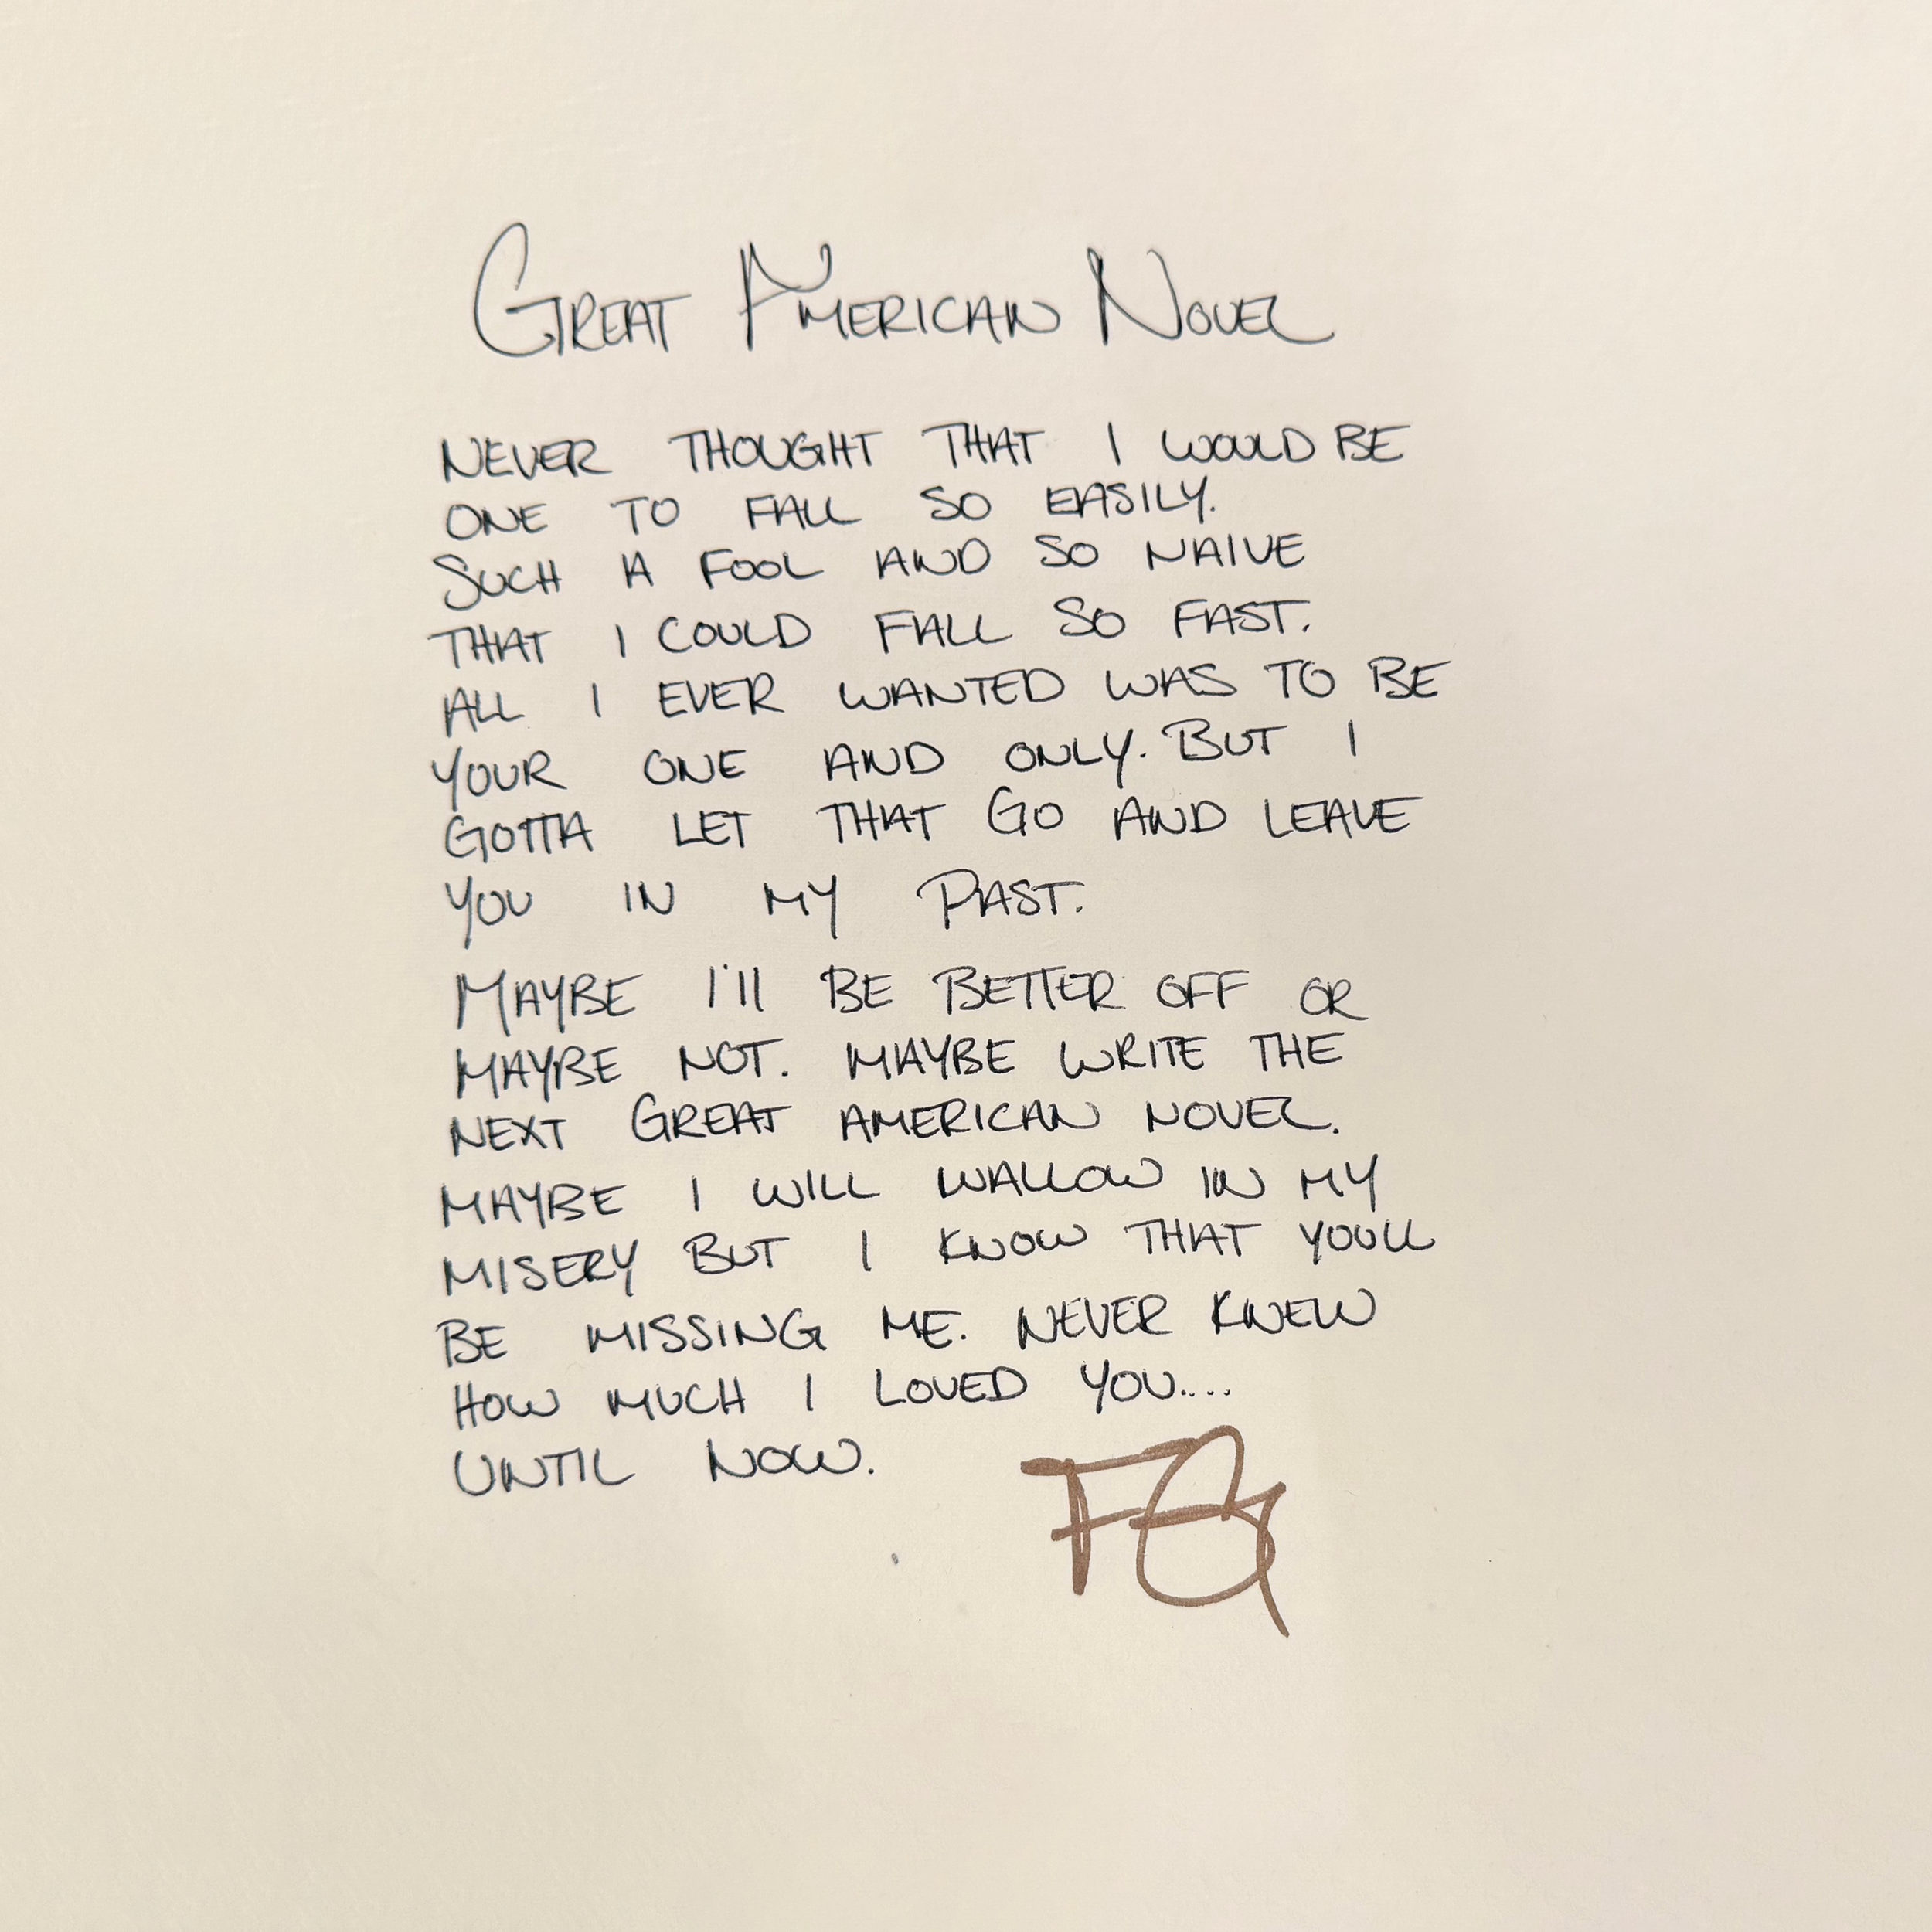 GREAT AMERICAN NOVEL
NEVER THOUGHT THAT I WOULD BE
ONE TO FALL SO EASILY.
SUCH A FOOL AND SO NAIVE
THAT I COULD FALL SO FAST.
ALL I EVER WANTED WAS TO BE
YOUR ONE AND ONLY. BUT I
GOTTA LET THAT GO AND LEAVE
YOU IN MY PAST.
MAYBE I'll BE BETTER OFF OR
MAYBE NOT. MAYBE WRITE THE
NEXT GREAT AMERICAN NOVEL.
MAYBE I WILL WALLOW IN MY
MISERY BUT I KNOW THAT YOULL
BE MISSING ME. NEVER KNEW
HOW MUCH I LOVED YOU....
UNTIL NOW.
FG